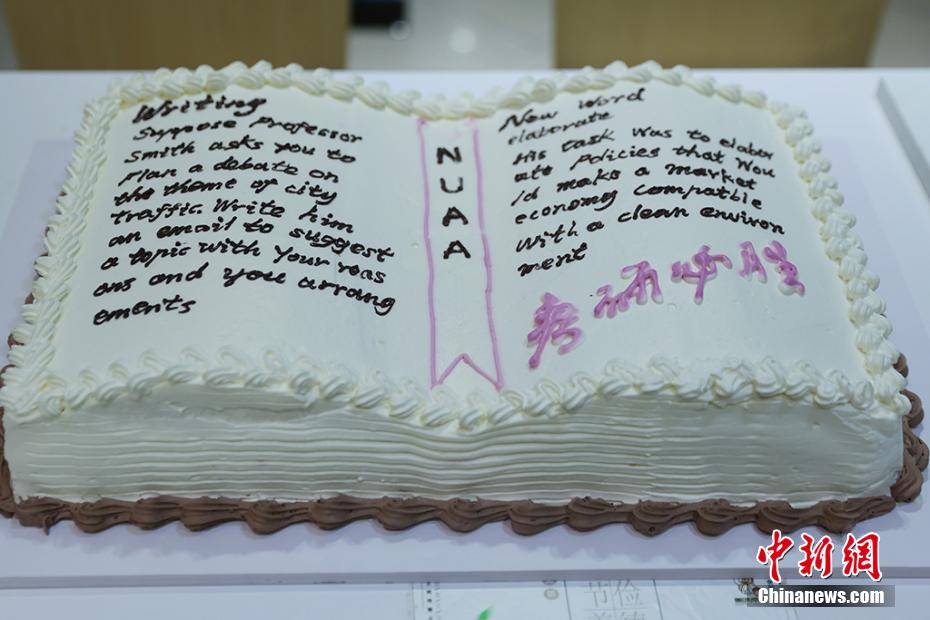 Writing
Suppose Professor
Smith asks you to
Plan a debate on
the theme of city
traffic. Write him
an email to suggest
a topic with your reas
ons and you arrang
ements
NUAA
New word
elaborate
His task was to elabor
ate Policies that wou
ld make a market
economy compatible
with a clean environ
ment
考研必胜
中新網
Chinanews.com
节俭